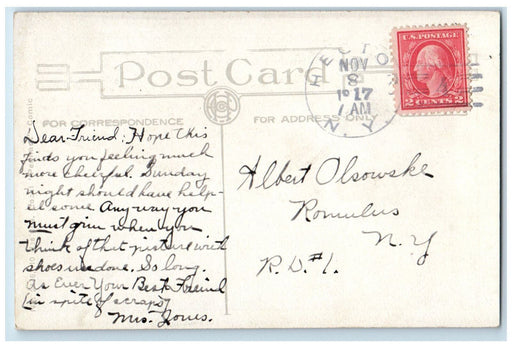 Post Card
FOR CORRESPONDENCE
FOR ADDRESS ONLY
HECTOR
NOV
8
1917
AM
N.Y.
U.S. POSTAGE
2 CENTS 2
Dear Friend: Hope this
finds you feeling much
more cheerful. Sunday
night should have help-
ed some. Any way you
must grin when you
think of that picture with
shoes undone. So long.
As Ever Your Best Friend
(in spite of scraps)
Mrs. Jones.
Albert Olsowske
Romulus
N. Y
R.D. #1.